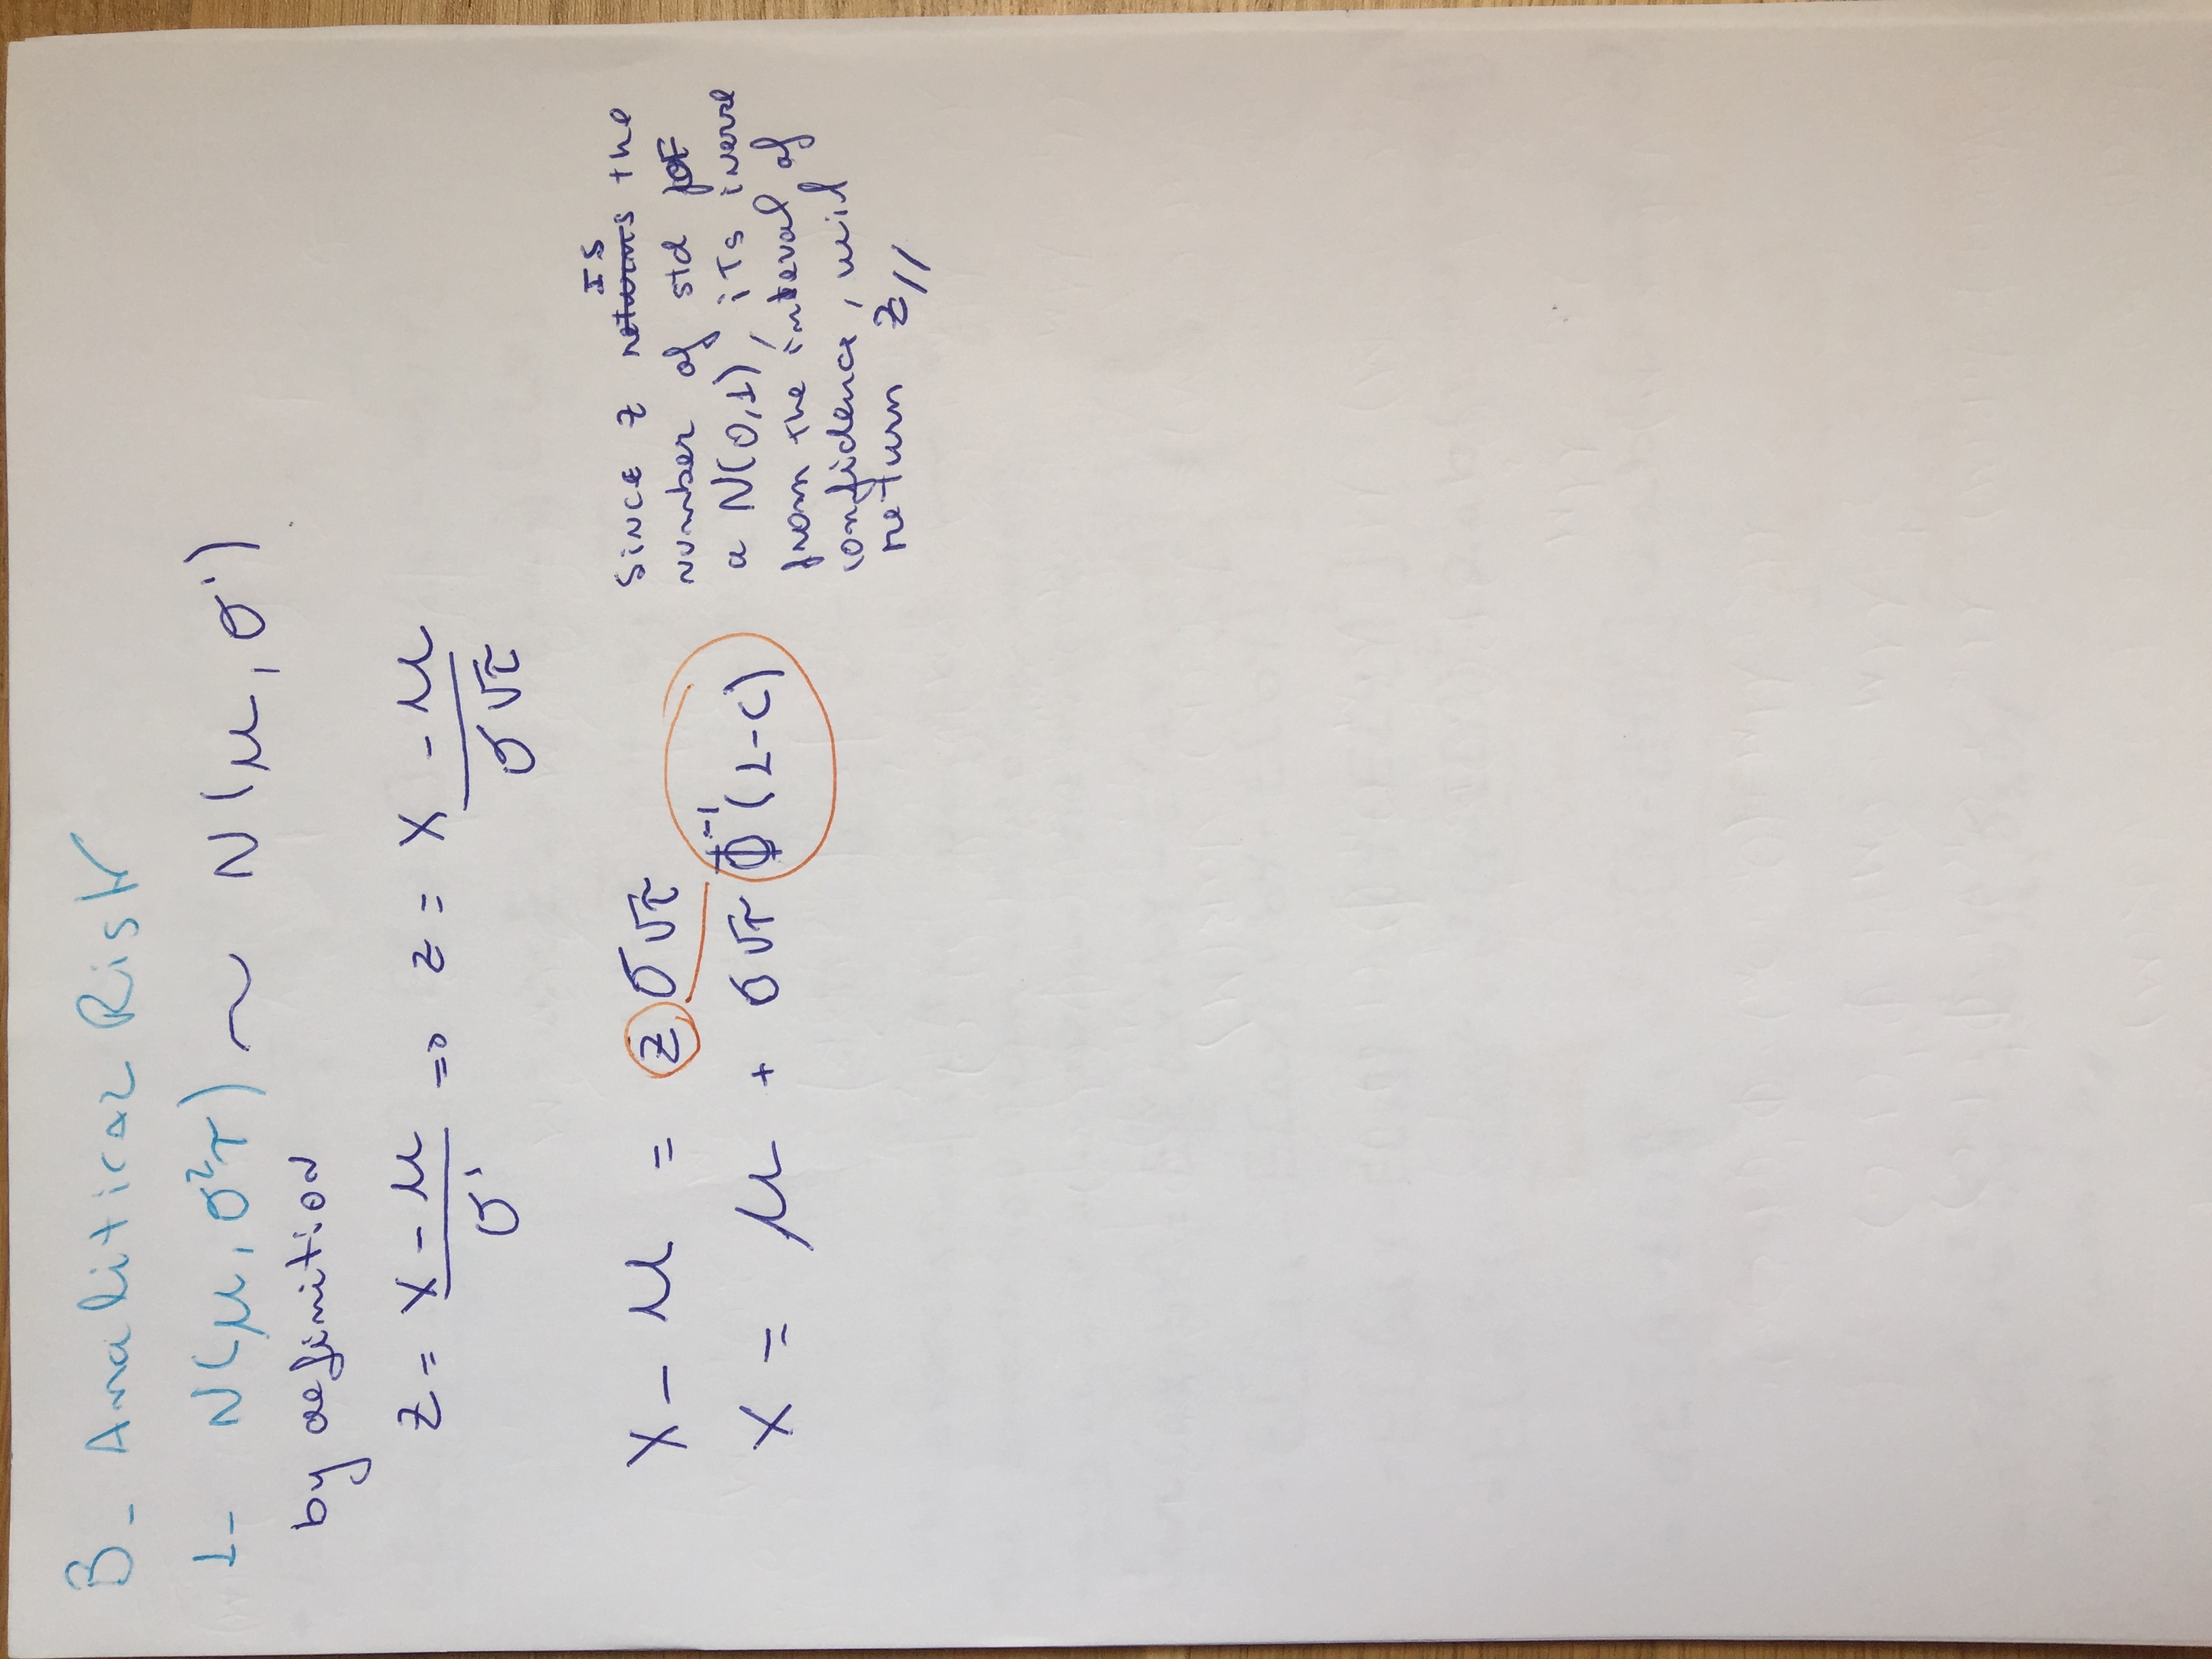 B- Analitical Risk
1- N(μ, σ²τ) ~ N(μ, σ')
by definition
z = (x - μ) / σ' => z = (x - μ) / (σ√τ)
x - μ = z σ√τ
x = μ + σ√τ Φ⁻¹(1-c)
since z returns IS the
number of std OF
a N(0,1), its inverse
from the interval of
confidence, will
return z //